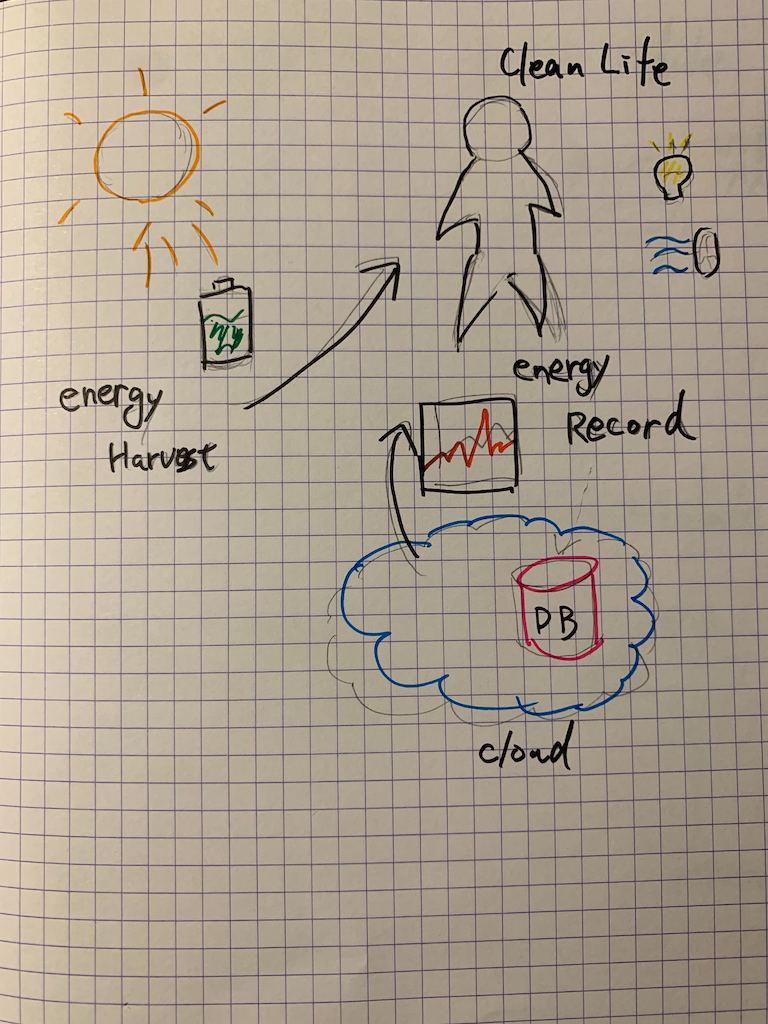 Clean Life
energy
Harvest
energy
Record
DB
cloud